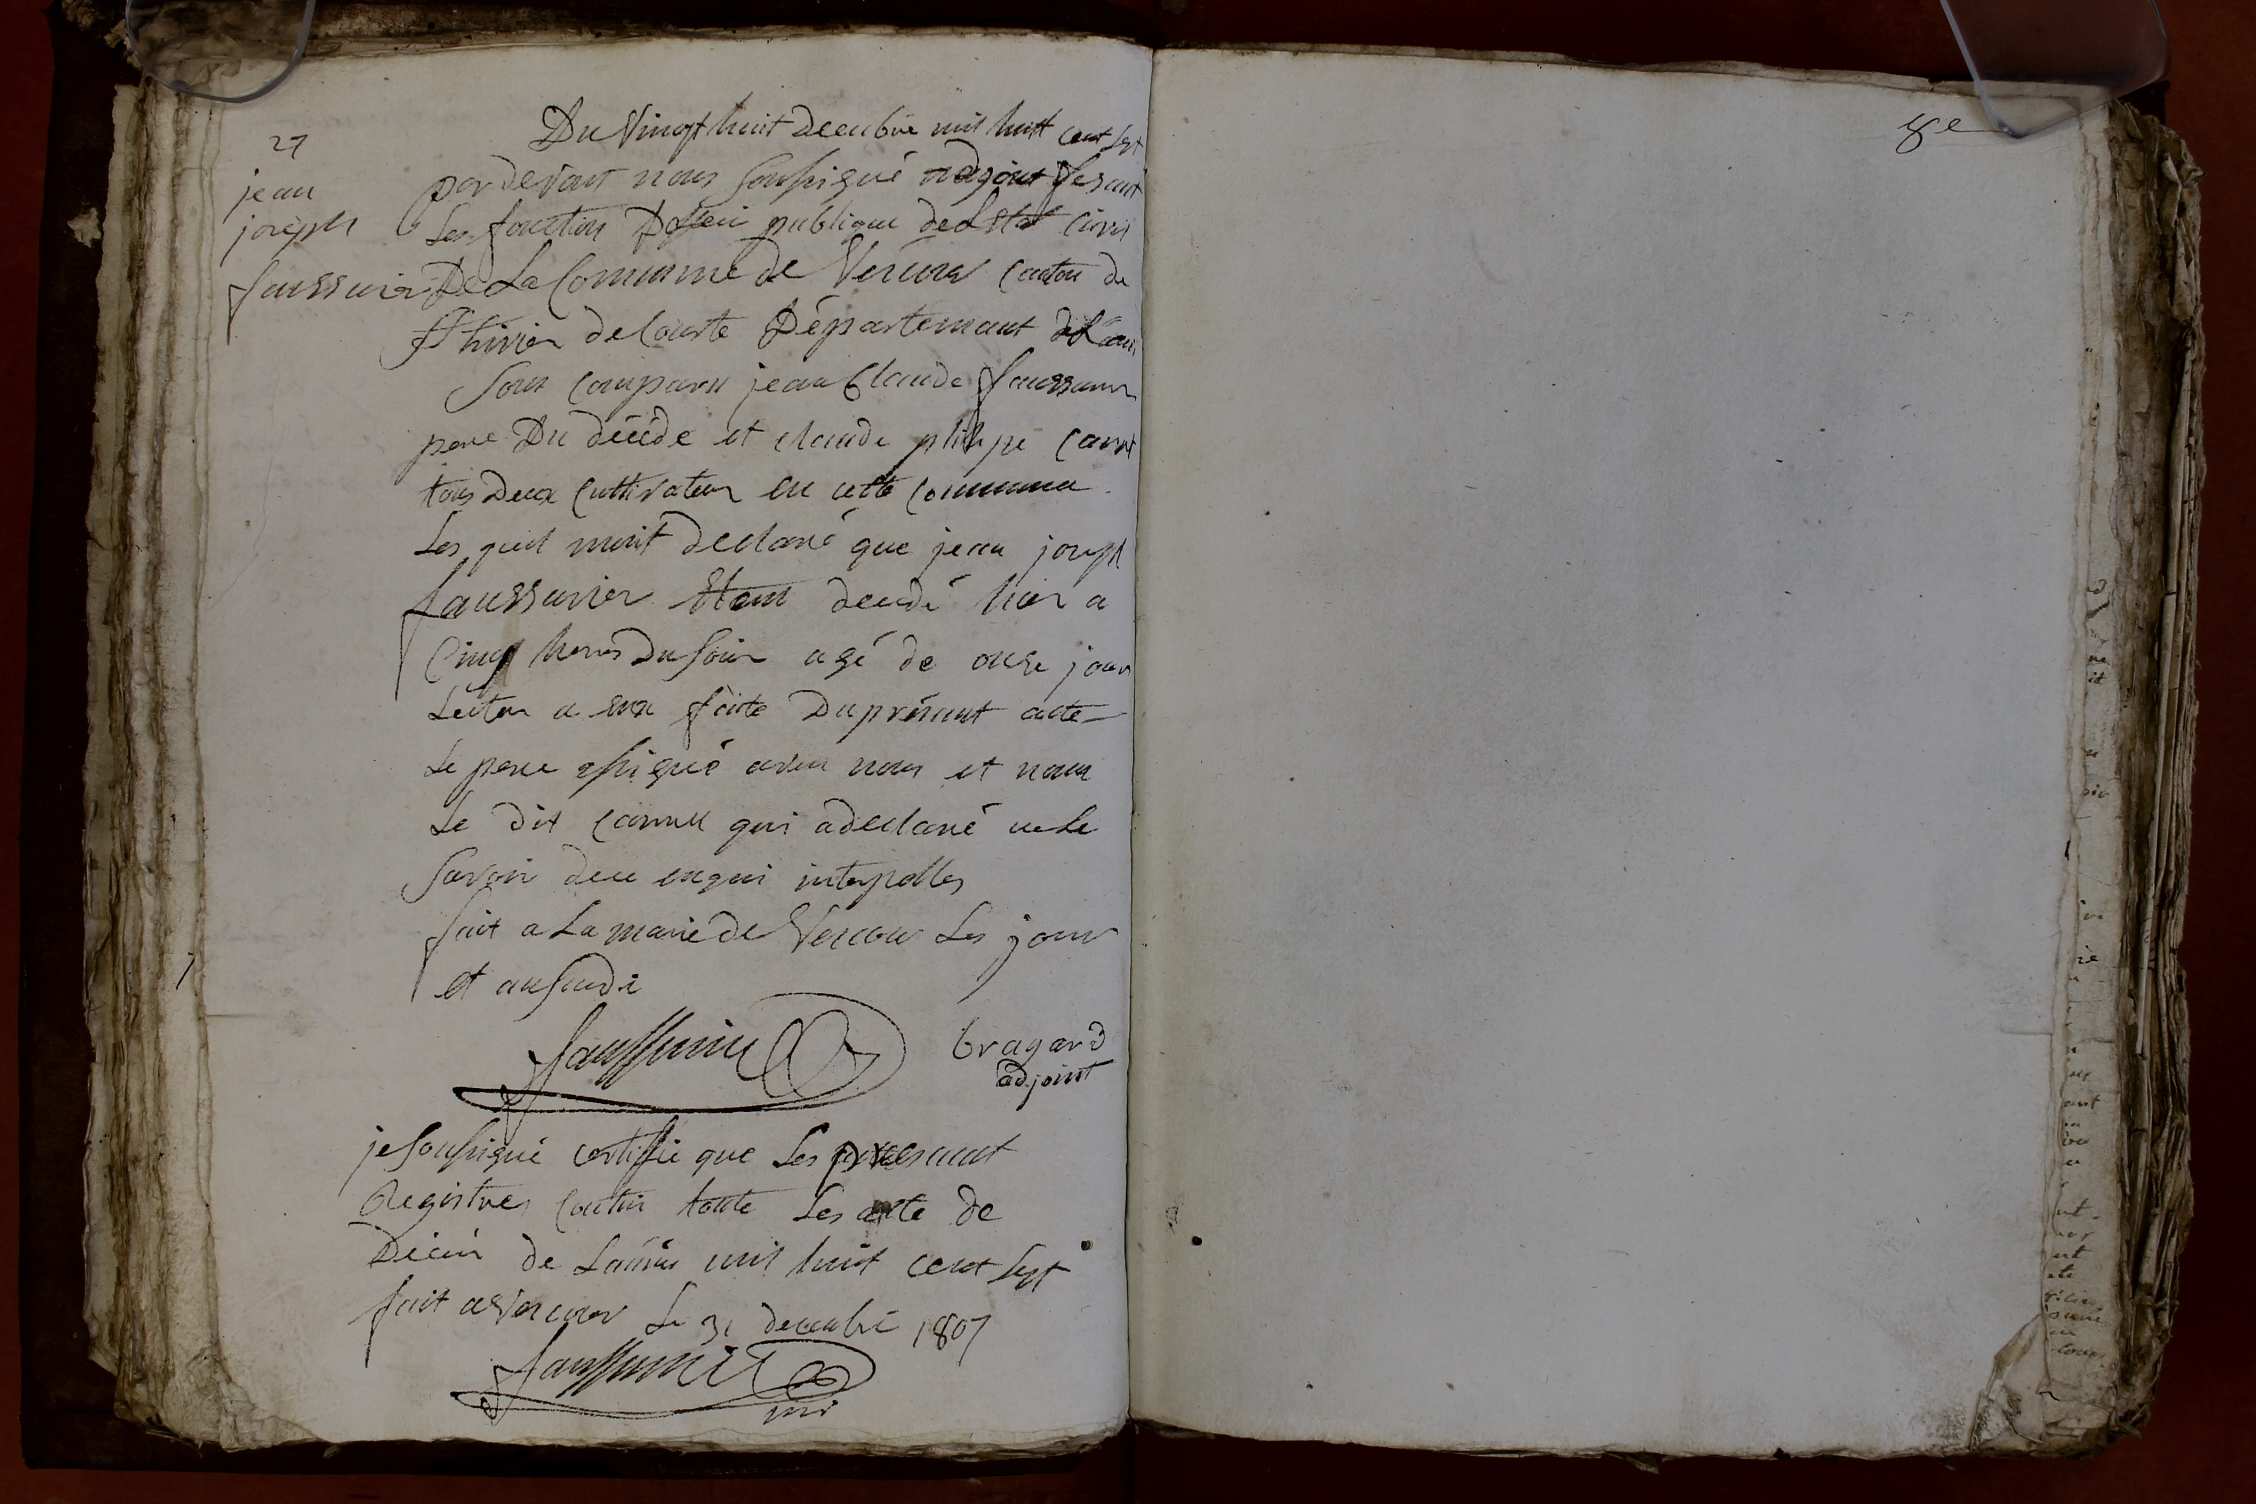 27
jean
joseph
faussurier
Du Vingt huit decenbre mil huit cent sept
par devant nous soussigné adjoint fesant
Les fonction Doffeié publique de Létat Civil
De La Commune de Vercors canton de
St hivier de Courte Département de Lain
sont comparu jean Claude faussurier
pere Du décédé et claude philipe
tous Deux Cultivateur en cette commune
Les quel mont déclaré que jean joseph
faussurier Etant decedé hier a
Cinq heures Du soir agé de onze jour
Lecteur a eux faite Du présent acte
Le pere a signé avec nous et nom
Le Dit qui a declaré ne Le
savoir dece enqui interpelles
fait a La marie de Vercour Les jour
et an susdi
faussurier
bragard
adjoint
je soussigné certiffie que Les present
Registres contin toute Les acte de
Décès de Lannée mil huit cent sept
fait a Vercour Le 31 decenbre 1807
faussurier
8e